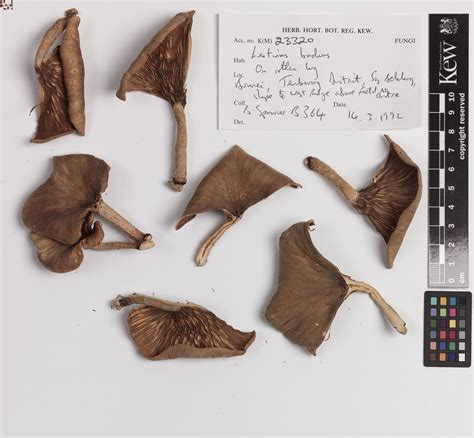 HERB. HORT. BOT. REG. KEW.
Acc. no. K(M) 23320 FUNGI
Lentinus
Hab. On rotten log
Loc. Brunei Temburong District, Sg. Belalong,
slope to West Ridge above Field Centre
Coll. B. Spooner B 364 Date. 14. 3. 1992
Det.
Kew
copyright reserved
cm
0 1 2 3 4 5 6 7 8 9 10